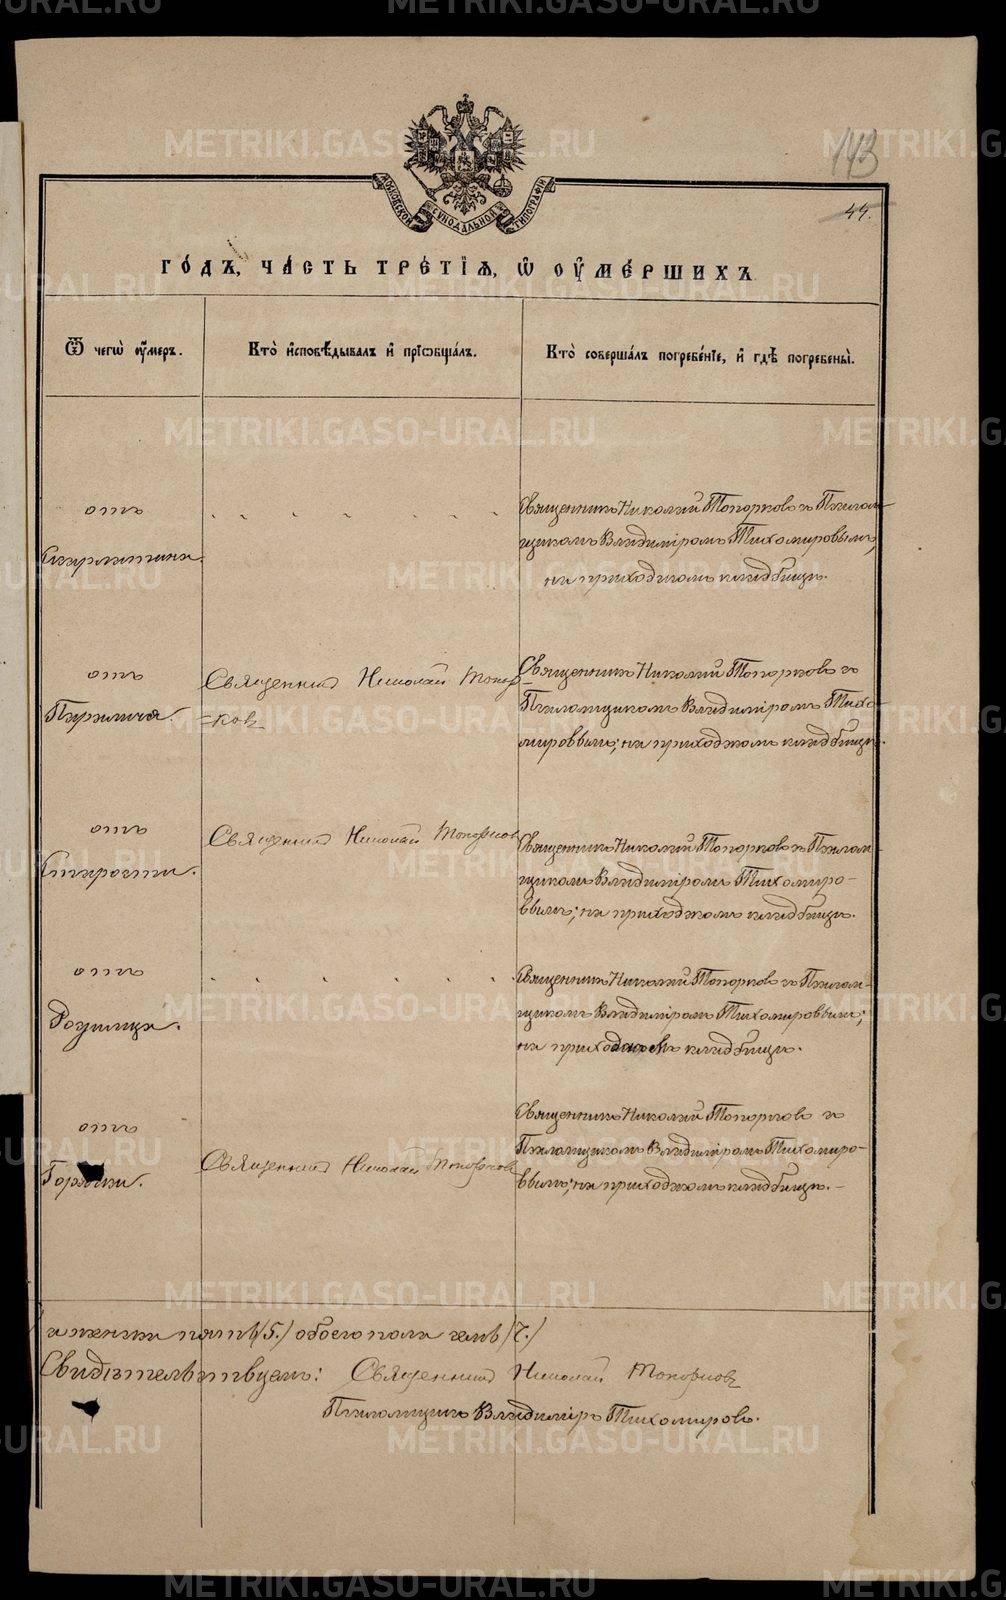 METRIKI.GASO-URAL.RU
143
44.
МОСКОВСКОЙ СѴНОДАЛЬНОЙ ТИПОГРАФІИ
ГО́ДЪ, ЧА́СТЬ ТРЕ́ТІѦ, Ѡ҆ ОУ҆МЕ́РШИХЪ
Ѿ чегѡ̀ оу҆́меръ.
Кто̀ и҆сповѣ́дывалъ и҆ прїѡбща́лъ.
Кто̀ соверша́лъ погребе́нїе, и҆ гдѣ̀ погребены̀.
отъ
Скарлатины.
Священникъ Николай Топорковъ съ Псалом-
щикомъ Владиміромъ Тихомировымъ,
на приходскомъ кладбищѣ.
отъ
Паралича.
Священникъ Николай Топор-
=ковъ
Священникъ Николай Топорковъ съ
Псаломщикомъ Владиміромъ Тихо-
мировымъ; на приходскомъ кладбищѣ.
отъ
Священникъ Николай Топорковъ
Священникъ Николай Топорковъ съ Псалом-
щикомъ Владиміромъ Тихомиро-
вымъ; на приходскомъ кладбищѣ.
отъ
Родимца.
Священникъ Николай Топорковъ съ Псалом-
щикомъ Владиміромъ Тихомировымъ;
на приходскомъ кладбищѣ.
отъ
Горячки.
Священникъ Николай Топорковъ
Священникъ Николай Топорковъ съ
Псаломщикомъ Владиміромъ Тихомиро-
вымъ; на приходскомъ кладбищѣ.
а женска пять (5.) обоего пола семь (7.)
Свидѣтельствуемъ: Священникъ Николай Топорковъ
Псаломщикъ Владиміръ Тихомировъ.